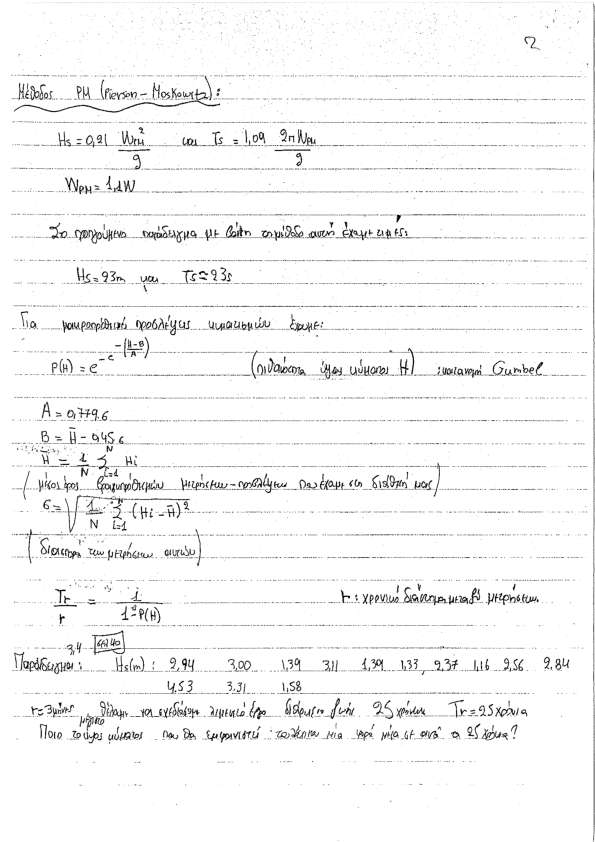 2
Μέθοδος PM (Pierson-Moskowitz):
Hs = 0,21 W_PM² / g και Ts = 1,09 2π W_PM / g
W_PM = 1,1W
Στο προηγούμενο παράδειγμα με βάση τη μέθοδο αυτή έχουμε
Hs = 23m και Ts ≃ 23s
Για μακροπρόθεσμες προβλέψεις κυματισμών έχουμε:
P(H) = e^{-e^{-(\frac{H-B}{A})}} (πιθανότητα ύψους κύματος H) : κατανομή Gumbel
A = 0,779σ
B = H̄ - 0,45σ
H̄ = 1/N Σ_{i=1}^{N} Hi
(μέσος όρος βραχυπρόθεσμων μετρήσεων-προβλέψεων που έχουμε στη διάθεσή μας)
σ = √(1/N Σ_{i=1}^{N} (Hi - H̄)²)
(διασπορά των μετρήσεων αυτών)
Tr/r = 1/(1-P(H)) r: χρονικό διάστημα μεταξύ μετρήσεων
3,4
Παράδειγμα: Hs(m): 2,94 3,00 1,39 3,11 1,39 1,33 2,37 1,16 2,56 2,84
4,53 3,31 1,58
r=3μήνες θέλουμε να σχεδιάσουμε λιμενικό έργο διάρκεια ζωής 25 χρόνων Tr = 25 χρόνια
Ποιο το μέγιστο ύψος κύματος που θα εμφανιστεί τουλάχιστον μία φορά μέσα σε αυτά τα 25 χρόνια?